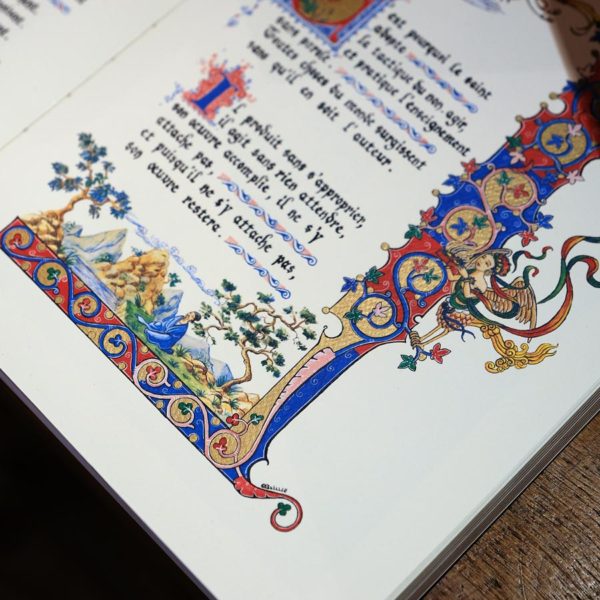 est pourquoi le saint
adopte
la tactique du non.agir,
et pratique l'enseignement
sans parole.
Toutes choses du monde surgissent
sans qu'il en soit l'auteur.
Il produit sans s'approprier,
il agit sans rien attendre,
son œuvre accomplie, il ne s'y
attache pas,
et puisqu'il ne s'y attache pas,
son œuvre restera.